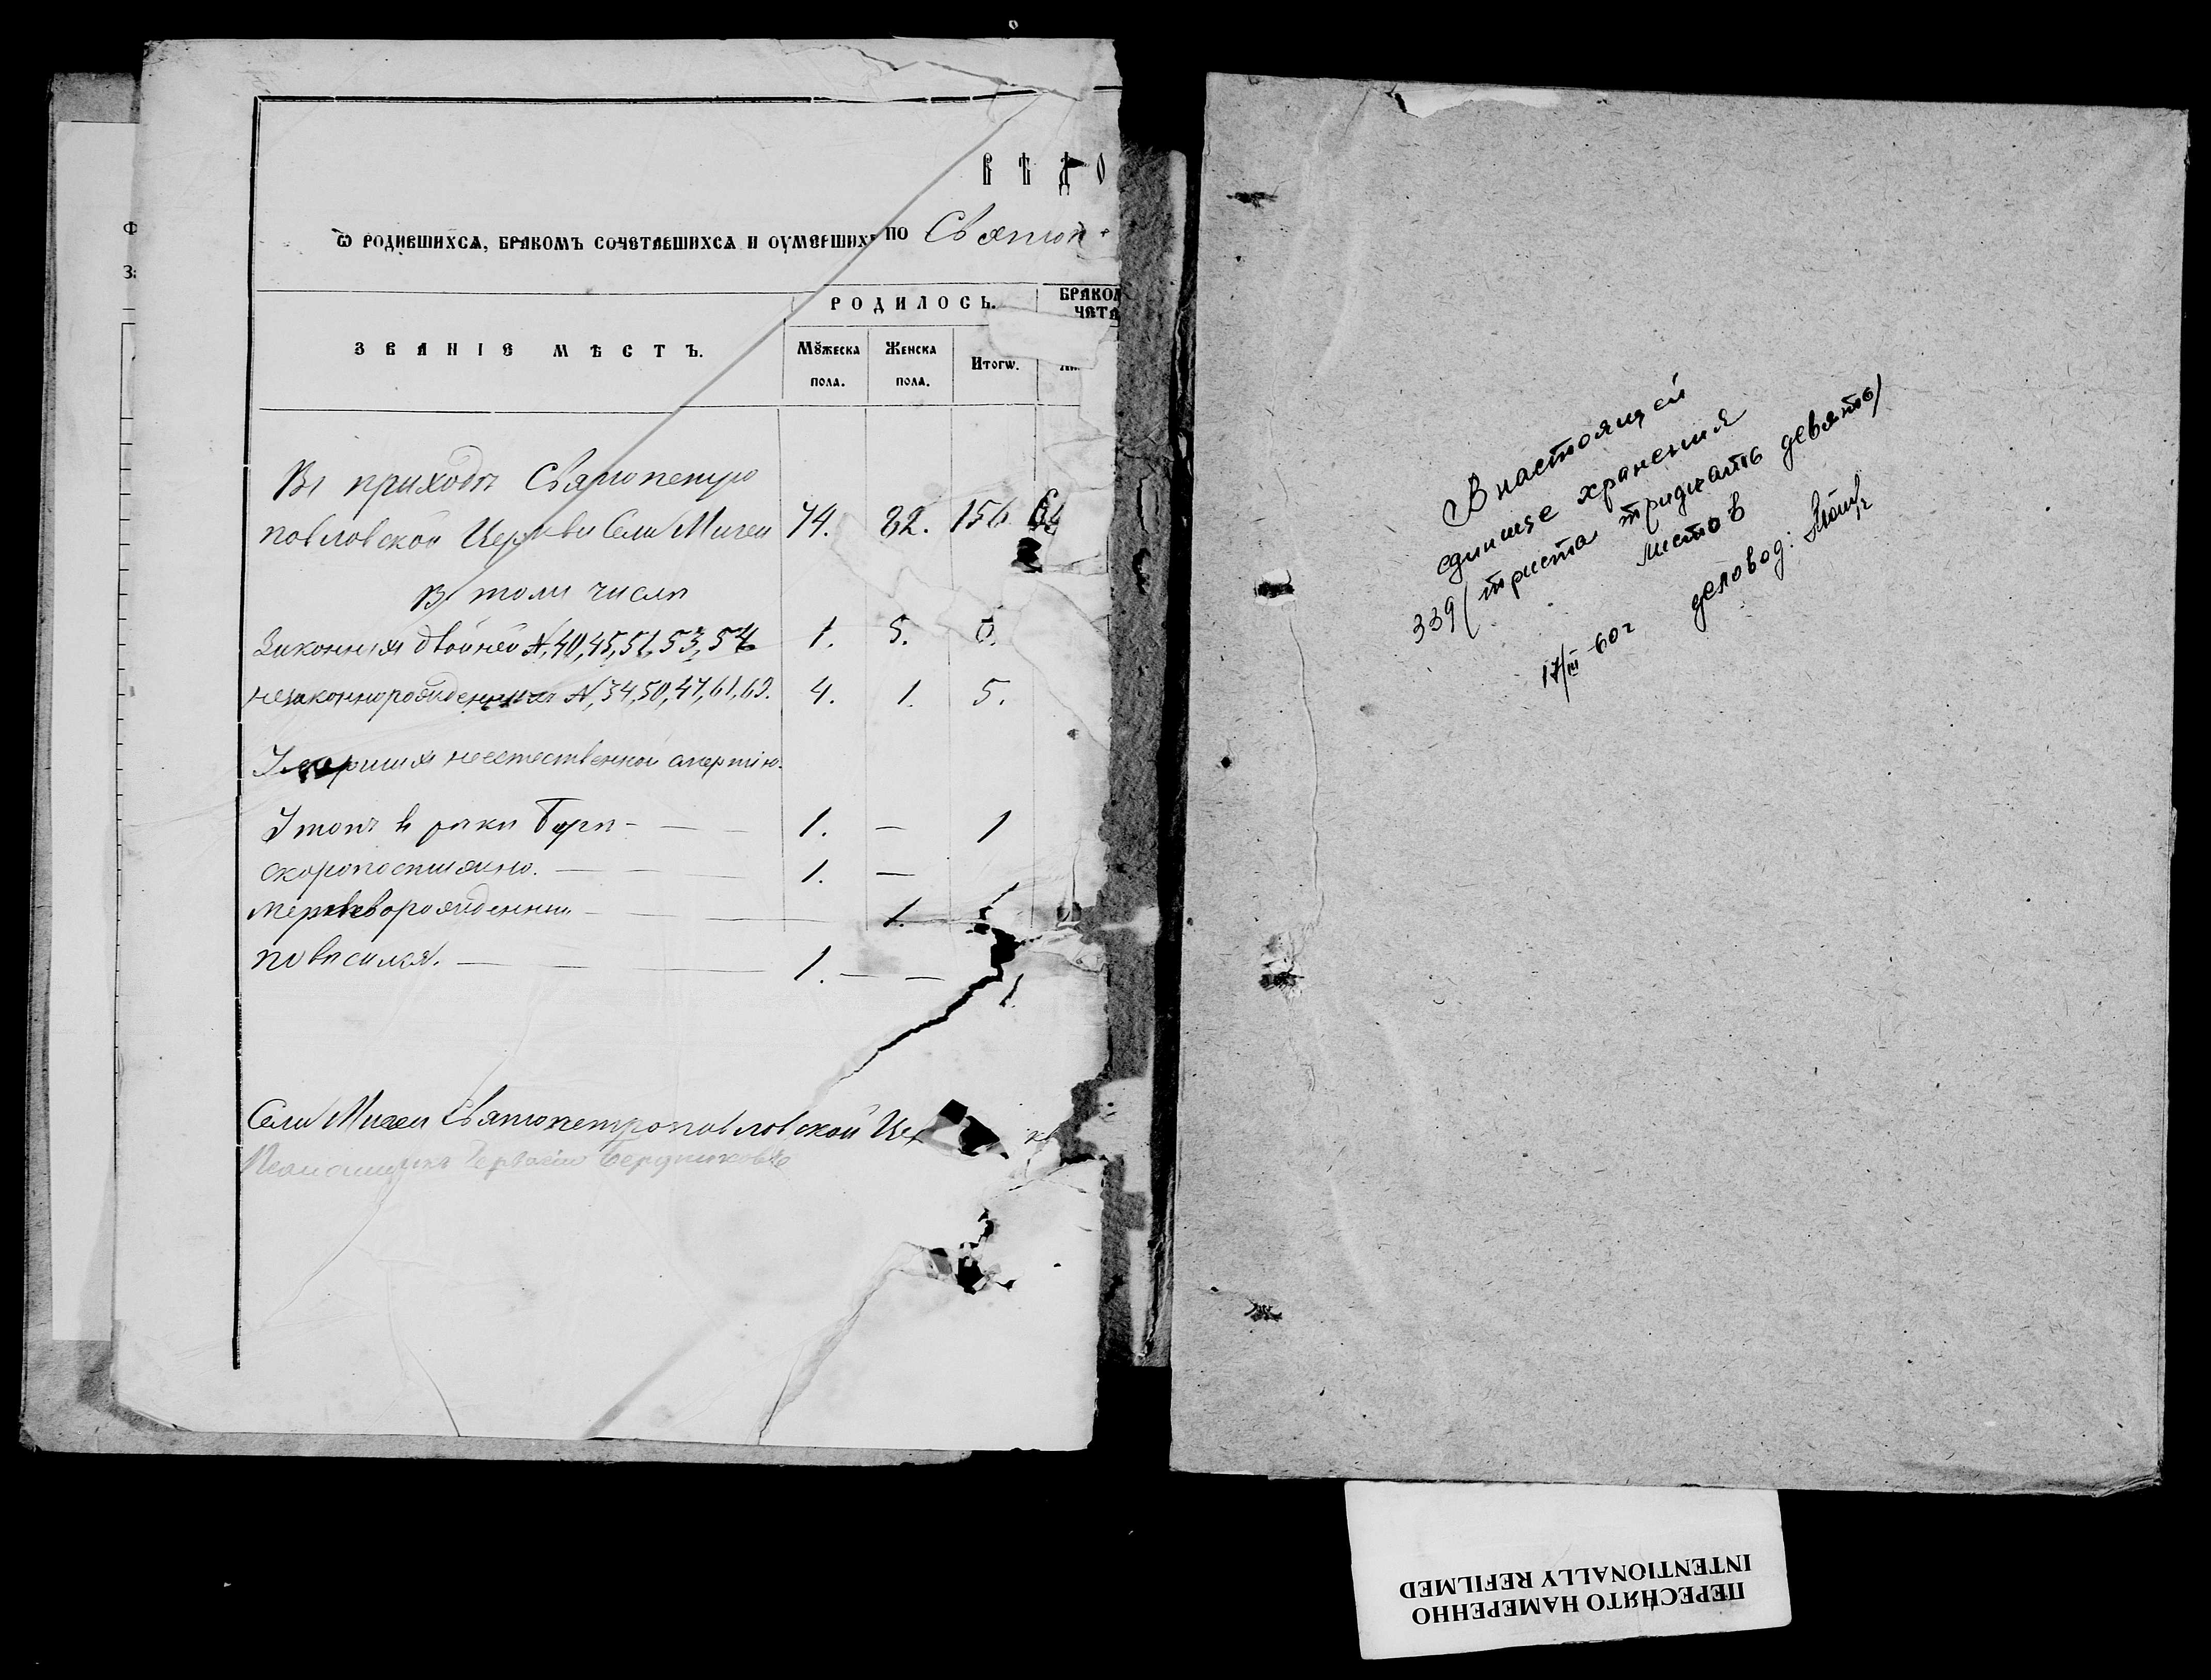 ВѢДО
Ѡ РОДИВШИХСѦ, БРАКОМЪ СОЧЕТАВШИХСѦ И ОУМЕРШИХЪ ПО Свято
РОДИЛОСЬ.
БРАКОМ
ЧЕТА
ЗВАНІЕ МѢСТЪ.
Мꙋжеска пола.
Женска пола.
Итогѡ.
Въ приходѣ Святопетро
павловской Церкви Села Мигеи 74. 82. 156
Въ томъ числѣ
Законныя двойней №, 40, 45, 51, 53, 54 1. 5.
незаконнорожденныхъ №, 34, 50, 47, 61, 62. 4. 1. 5.
Умершихъ неестественной смертію.
Утонъ в рѣки 1. — 1
скоропостижно. 1. —
мертворожденны 1. 1
повѣсился. 1. — — 1.
Села Мигеи Святопетропавловской Це
В настоящей
единице хранения
339 (триста тридцать девять)
листов
17/III-60г деловод:
ПЕРЕСНЯТО НАМЕРЕННО
INTENTIONALLY REFILMED